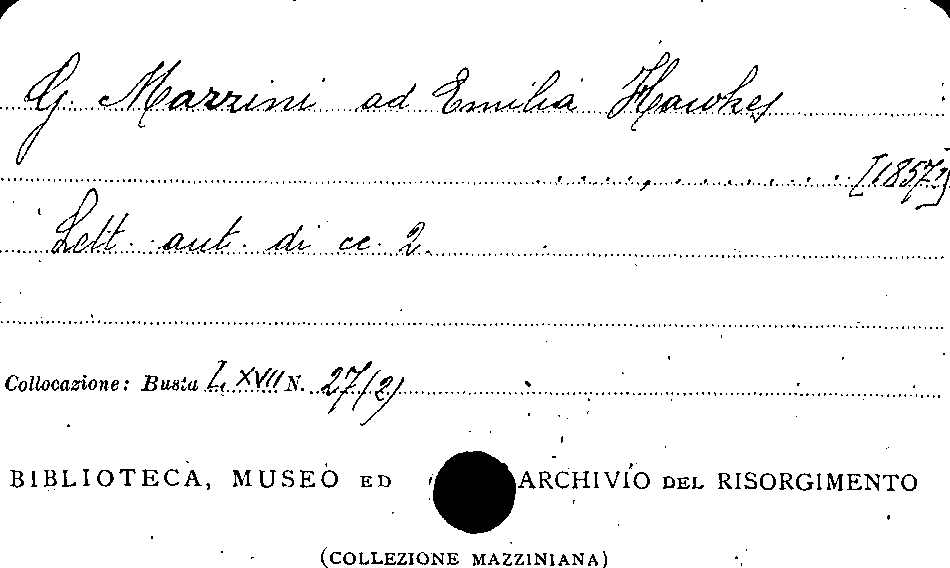 G. Mazzini ad Emilia Hawkes
[1857?]
Lett. aut. di cc. 2.
Collocazione: Busta LXVII N. 27(2)
BIBLIOTECA, MUSEO ED ARCHIVIO DEL RISORGIMENTO
(COLLEZIONE MAZZINIANA)